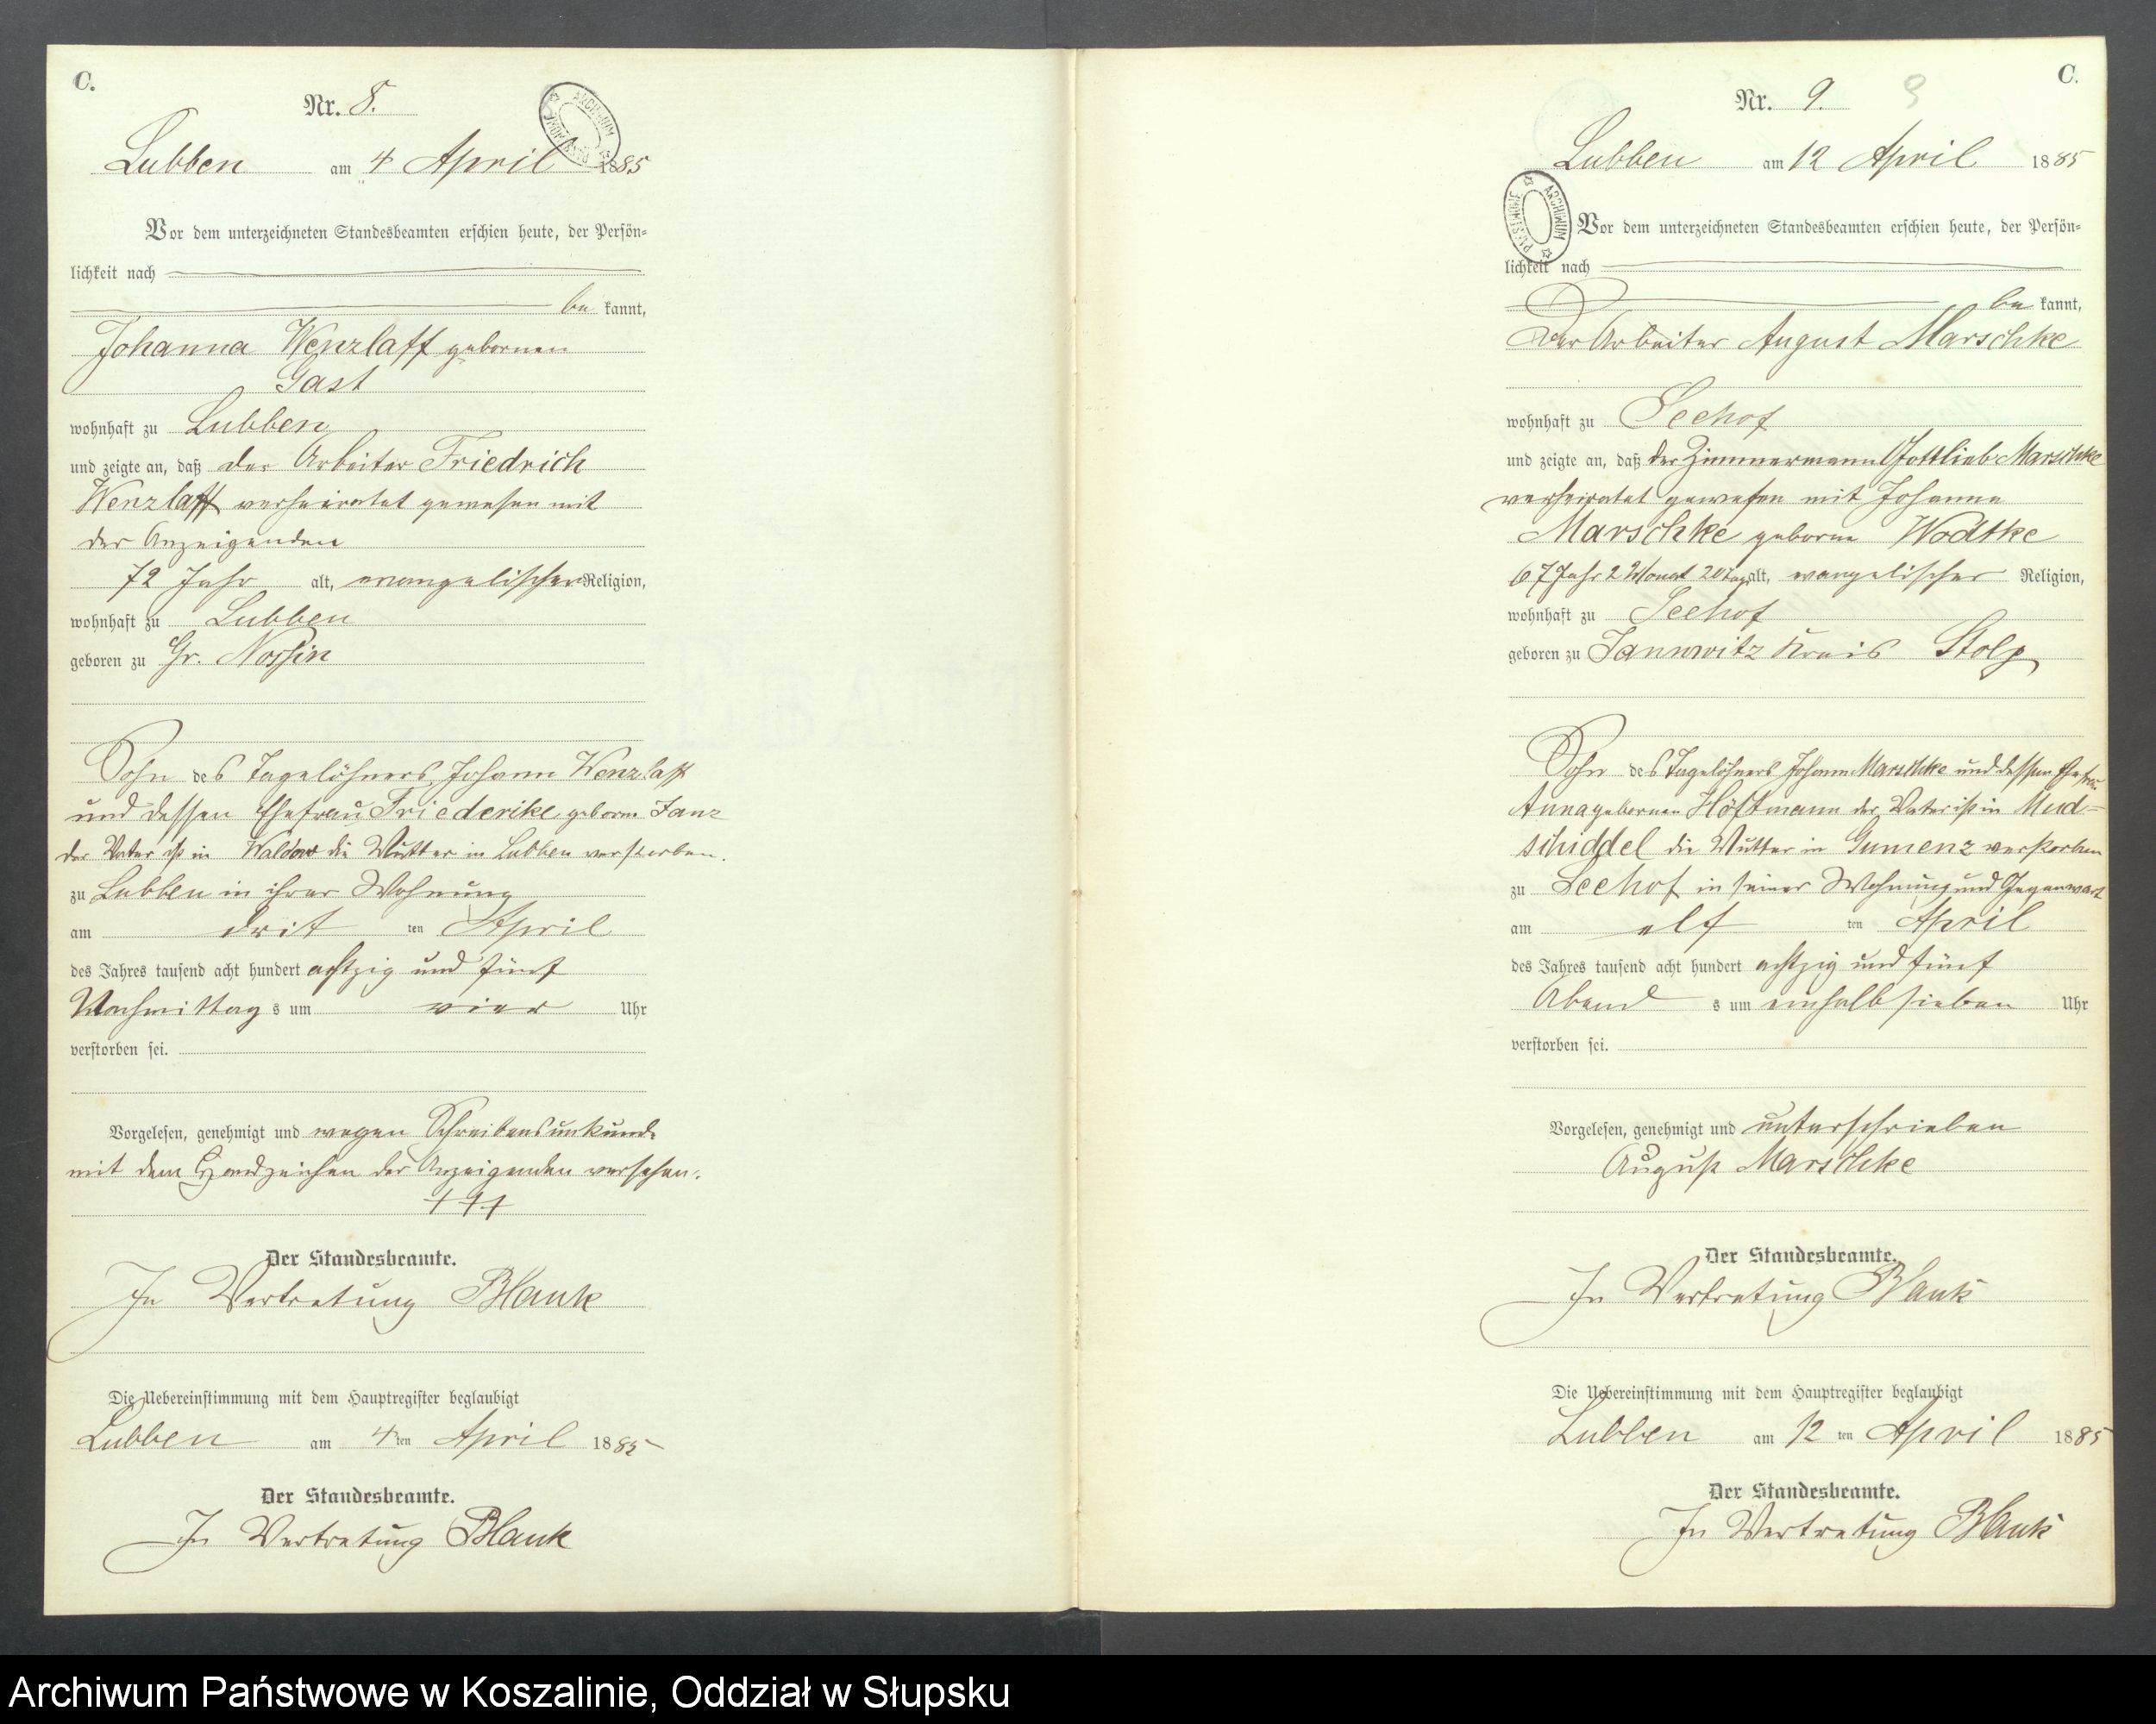 C.
Nr. 8.
Lubben am 4 April 1885
Vor dem unterzeichneten Standesbeamten erschien heute, der Persön=
lichkeit nach
be kannt,
Johanna Wenzlaff gebornen
Gast
wohnhaft zu Lubben
und zeigte an, daß der Arbeiter Friedrich
Wenzlaff verheiratet gewesen mit
der Anzeigenden
72 Jahr alt, evangelischer Religion,
wohnhaft zu Lubben
geboren zu Gr. Nossin
Sohn des Tagelöhners Johann Wenzlaff
und dessen Ehefrau Friederike geborne Janz
der Vater ist in Waldow die Mutter in Lubben verstorben.
zu Lubben in ihrer Wohnung
am drit ten April
des Jahres tausend acht hundert achtzig und fünf
Nachmittag s um vier Uhr
verstorben sei.
Vorgelesen, genehmigt und wegen Schreibensunkunde
mit dem Handzeichen der Anzeigenden versehen.
+++
Der Standesbeamte.
In Vertretung Blank
Die Uebereinstimmung mit dem Hauptregister beglaubigt
Lubben am 4 ten April 1885
Der Standesbeamte.
In Vertretung Blank
C.
Nr. 9. 9
Lubben am 12 April 1885
Vor dem unterzeichneten Standesbeamten erschien heute, der Persön=
lichkeit nach
be kannt,
Der Arbeiter August Marschke
wohnhaft zu Seehof
und zeigte an, daß der Zimmermann Gottlieb Marschke
verheiratet gewesen mit Johanne
Marschke geborne Wodtke
67 Jahr 2 Monat 20 Tag alt, evangelischer Religion,
wohnhaft zu Seehof
geboren zu Jannwitz Kreis Stolp
Sohn des Tagelöhners Johann Marschke und dessen Ehefrau
Anna gebornen Höftmann der Vater ist in Mud=
schiddel die Mutter in Gumenz verstorben
zu Seehof in seiner Wohnung und Gegenwart
am elf ten April
des Jahres tausend acht hundert achtzig und fünf
Abend s um einhalb sieben Uhr
verstorben sei.
Vorgelesen, genehmigt und unterschrieben
August Marschke
Der Standesbeamte.
In Vertretung Blank
Die Uebereinstimmung mit dem Hauptregister beglaubigt
Lubben am 12 ten April 1885
Der Standesbeamte.
In Vertretung Blank
Archiwum Państwowe w Koszalinie, Oddział w Słupsku